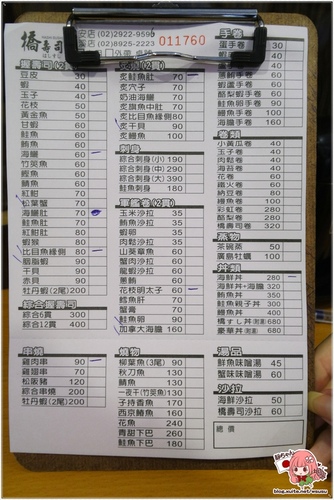 橋壽司
安店 (02)2922-9595
店 (02)8925-2223
011760
外帶 桌號
握壽司(2貫)
豆皮 30
蝦 40
玉子 40
花枝 50
黃金魚 50
甘蝦 60
鮭魚 60
鮪魚 60
海鱺 60
竹筴魚 60
鰹魚 60
鯛魚 60
紅魽 70
松葉蟹 70
海鱺肚 70
鮭魚肚 70
紅魽肚 80
蝦猴 80
比目魚緣側 80
胭脂蝦 80
干貝 90
赤貝 90
牡丹蝦(2尾) 200
綜合握壽司
綜合6貫 300
綜合12貫 400
串燒
雞肉串 90
雞翅串 70
松阪豬 120
綜合串燒 200
牡丹蝦(2尾) 200
炙鮭魚肚 70
炙穴子 70
奶油海鱺 70
炙旗魚中肚 70
炙比目魚緣側 80
炙干貝 90
炙鰻魚 100
刺身
綜合刺身(小) 190
綜合刺身(中) 290
綜合刺身(大) 390
鮭魚刺身 180
軍艦卷(2貫)
玉米沙拉 35
龍蝦沙拉 60
蔥鮪 60
花枝明太子 60
鱈魚肝 70
蟹膏 70
鮭魚卵 90
加拿大海膽 160
燒物
柳葉魚(3尾) 90
秋刀魚 50
鯖魚 100
一夜干(竹筴魚) 130
子持香魚 170
西京鰆魚 160
花魚 240
青甘下巴 260
鮭魚下巴 180
手卷
蛋手卷 30
蝦手卷 40
蝦蘆手卷 60
酪梨蝦手卷 60
鮭魚卵手卷 90
鰻魚手卷 100
海膽手卷 160
卷類
小黃瓜卷 40
玉子卷 40
肉鬆卷 50
海苔卷 40
花卷 60
鐵火卷 80
鰻魚卷 100
彩虹卷 280
酪梨卷 280
橋壽司卷 320
蒸物
茶碗蒸 50
廣島牡蠣 100
丼類
海鮮丼 280
海鮮丼+海膽 320
鮪魚丼 300
鮭魚親子丼 300
鰻魚丼 300
湯品
鮮魚味噌湯 45
蟹味味噌湯 60
沙拉
海鮮沙拉 50
橋壽司沙拉 60
總價